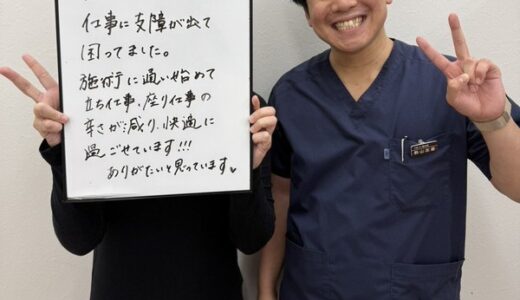 仕事に支障が出て
困ってました。
施術に通い始めて
立ち仕事、座り仕事の
辛さが減り、快適に
過ごせています!!!
ありがたいと思っています